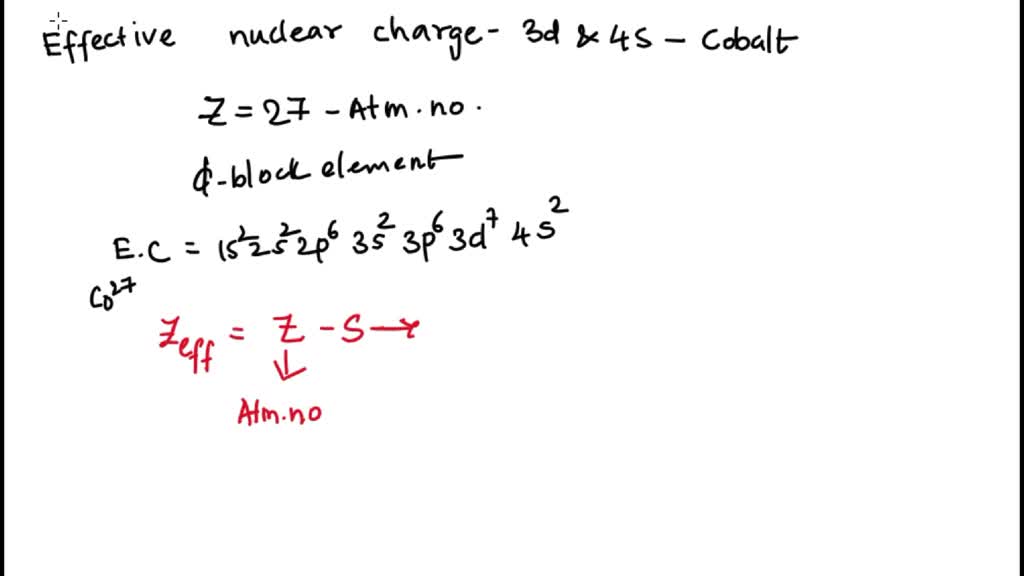 Effective nuclear charge - 3d & 4s - Cobalt
Z = 27 - Atm. no.
d-block element
E.C = 1s² 2s² 2p⁶ 3s² 3p⁶ 3d⁷ 4s²
Co²⁷
Zeff = Z - S →
↓
Atm.no